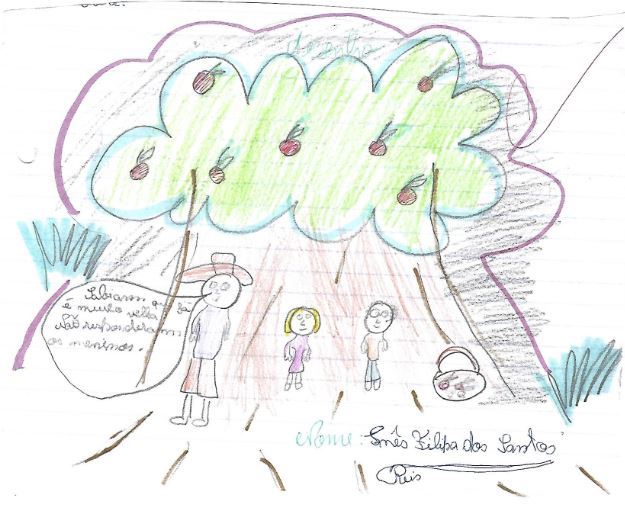 desenho
Sabiam que já
é muito velha
Não responderam
os meninos.
Nome: Inês Filipa dos Santos
Reis